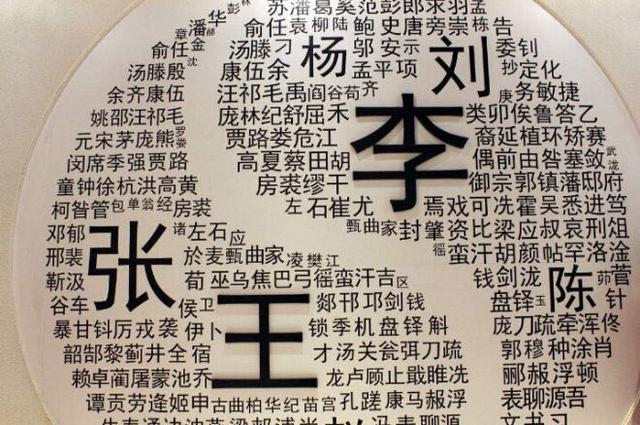 苏潘葛奚范彭郎
潘华
俞任袁柳陆鲍史唐旁崇栋告
俞任金
汤滕刁
杨
邬安示
刘
委钊
汤滕殷
康伍余
孟平项
抄定化
余齐康伍
汪祁毛禹阎谷荀齐
务敏捷
姚邵汪祁毛
庞林纪舒屈禾
李
类卯俟鲁答乙
元宋茅庞熊
贾路娄危江
裔延植环矫赛
闵席季强贾路
高夏蔡田胡
偶前由昝塞敛
童钟徐杭洪高黄
房裘缪干
御宗郭镇潘邸府
柯昝管包单翁经房裘
左石崔尤
焉戏可冼霍吴悉进笃
邓郁
张
诸左石应
甄曲家封肇资比梁应叔哀刑俎
邢裴
於麦甄曲家凌樊江
徭蛮汗胡颜帖罕洛淦
靳汲
荀巫乌焦巴弓徭蛮汗吉区
钱剑泷
陈
茆菅
谷车
侯卫
王
郯邗邛剑钱
盘铎玉
针
暴甘钭厉戎袭伊卜
锁季机盘铎斛
庞刀疏牵浑佟
韶郜黎蓟井全宿
才汤关瓮弭刀疏
郭穆种涂肖
赖卓蔺屠蒙池乔
龙卢顾止戢睢冼
郦郝浮顿
谭贡劳逄姬申古曲柏华纪苗宫孔蹉康马郝浮
表聊源吾